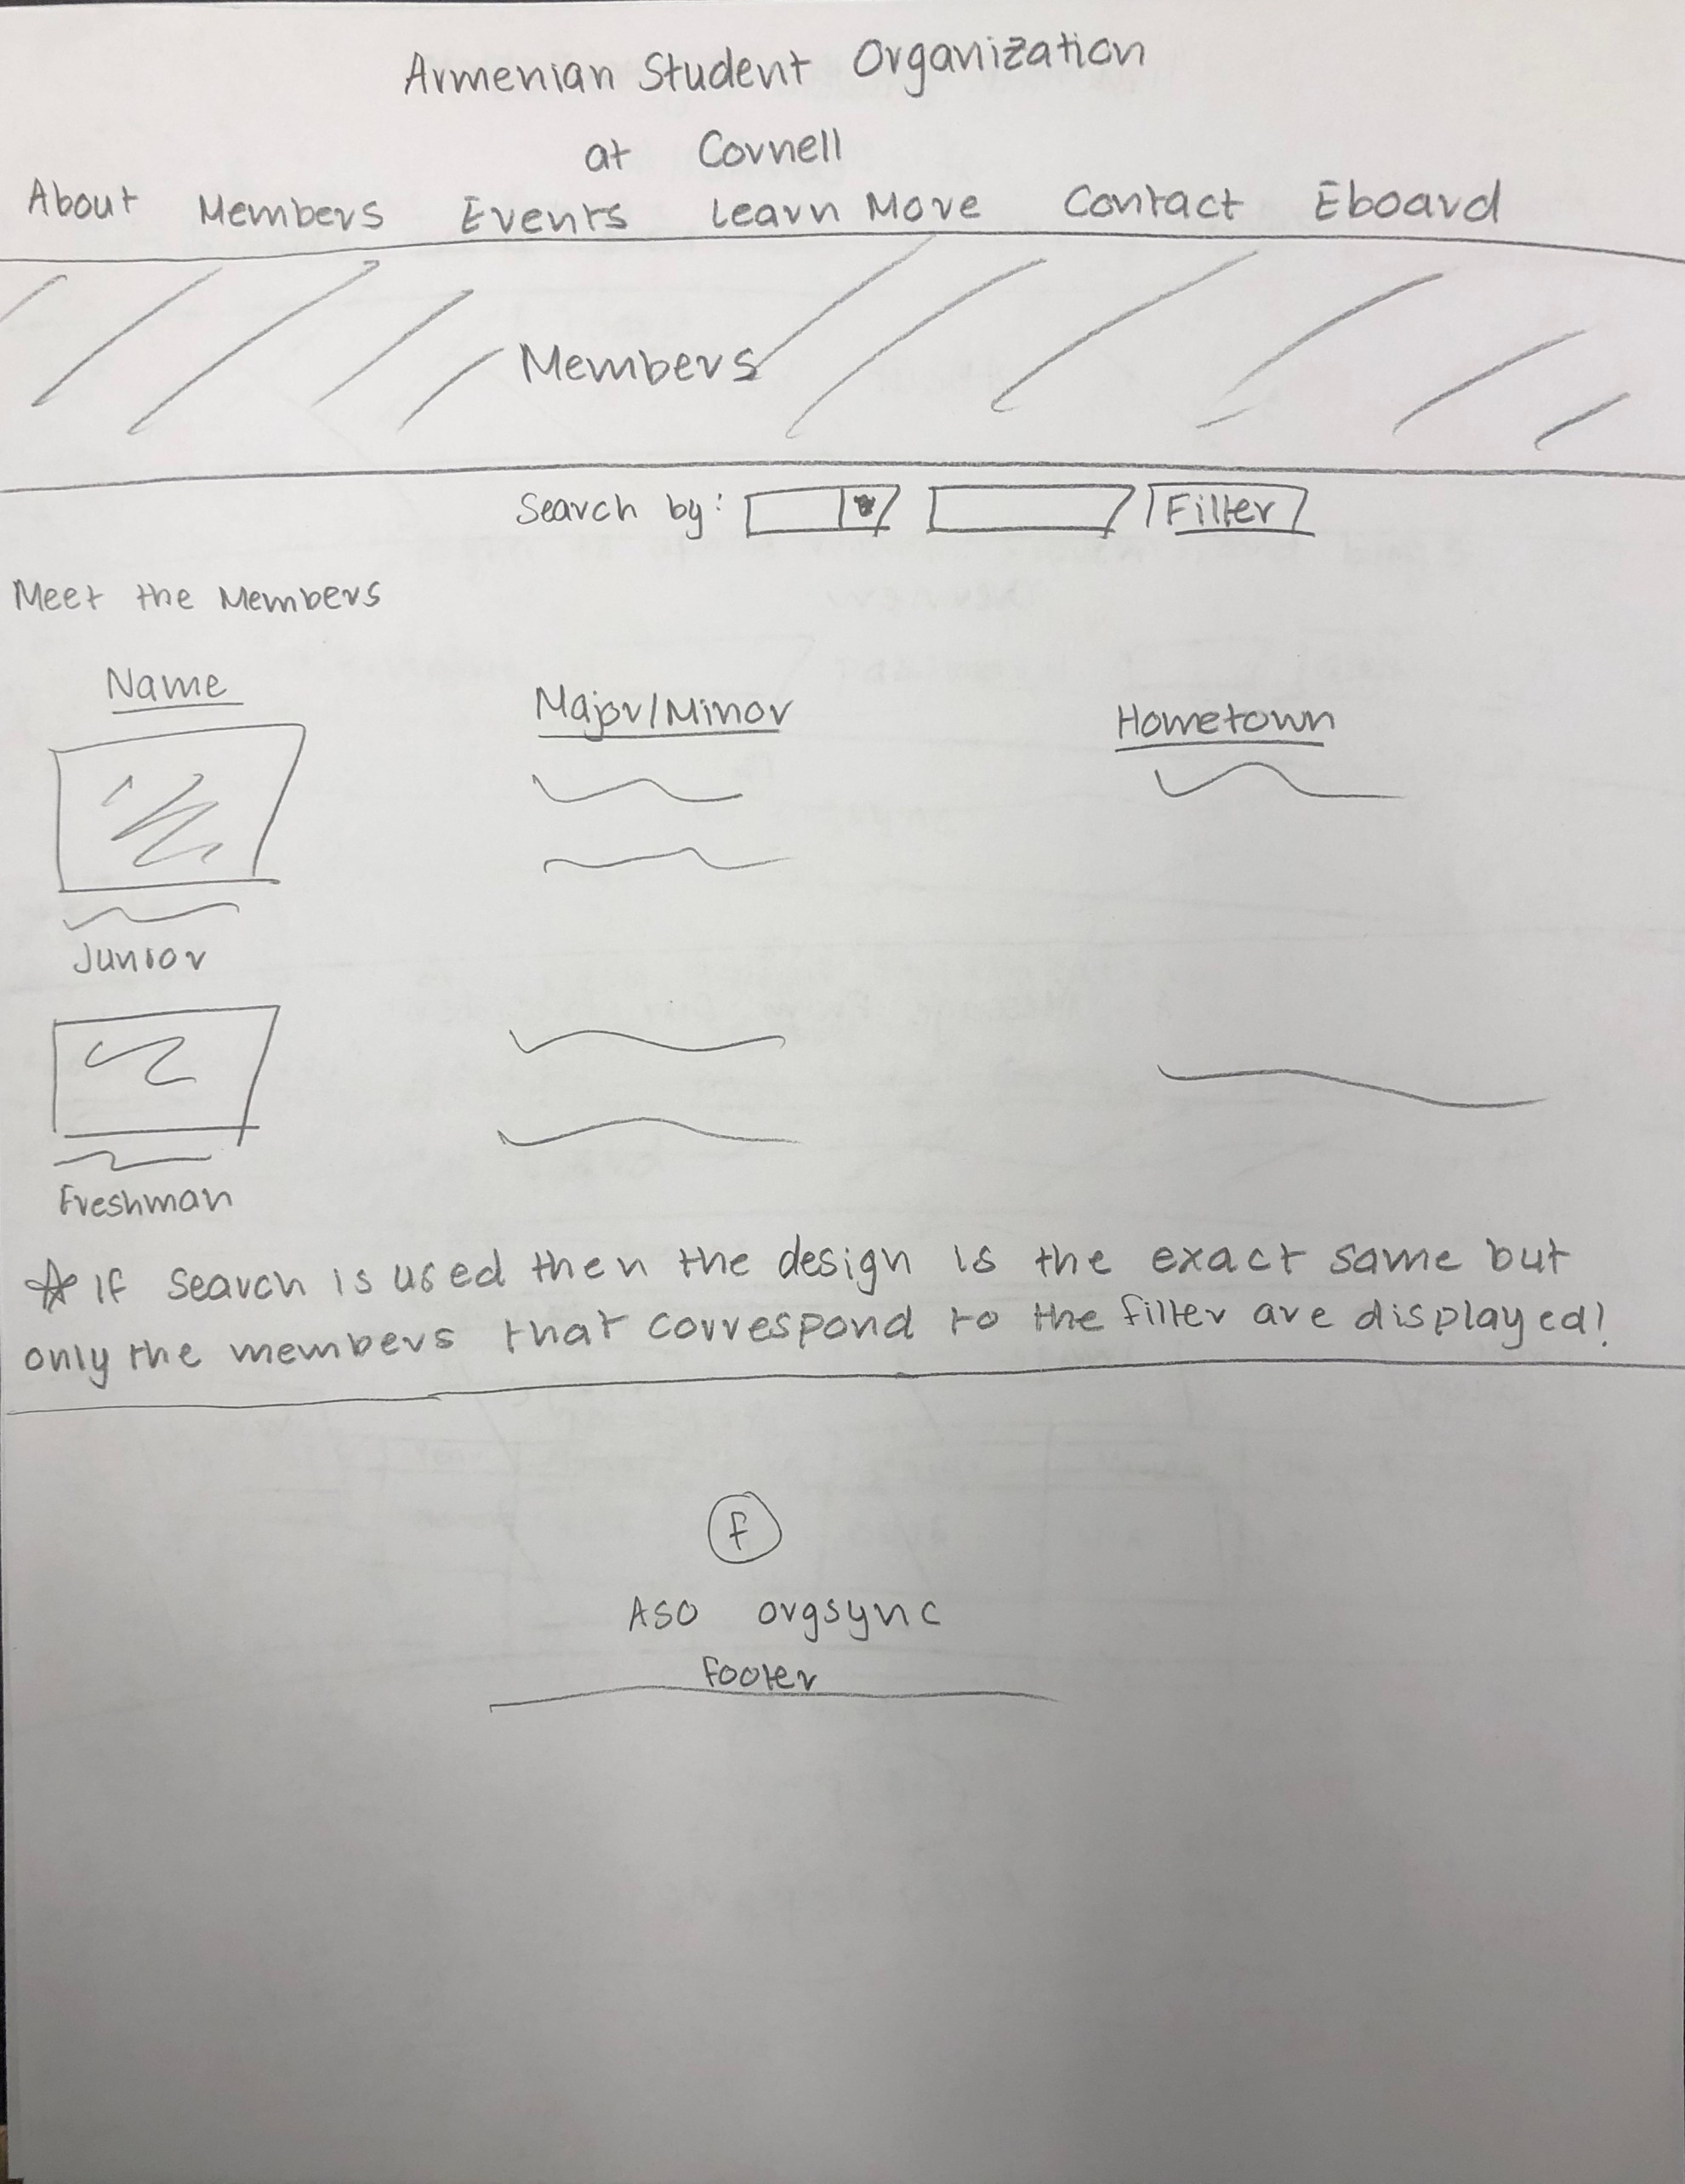 Armenian Student Organization
at Cornell
About Members Events Learn More Contact Eboard
Members
Search by: Filter
Meet the Members
Name Major/Minor Hometown
Junior
Freshman
☆ If search is used then the design is the exact same but
only the members that correspond to the filter are displayed!
f
ASO orgsync
footer